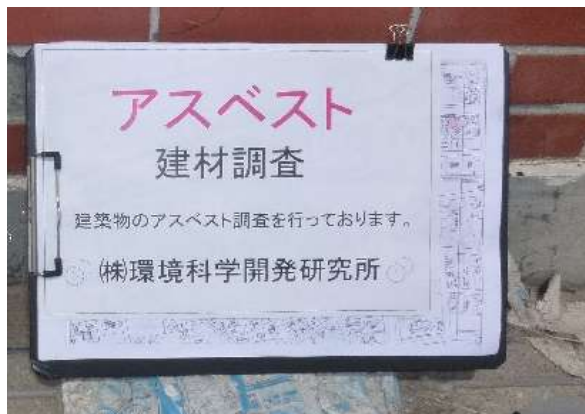 アスベスト
建材調査
建築物のアスベスト調査を行っております。
㈱環境科学開発研究所